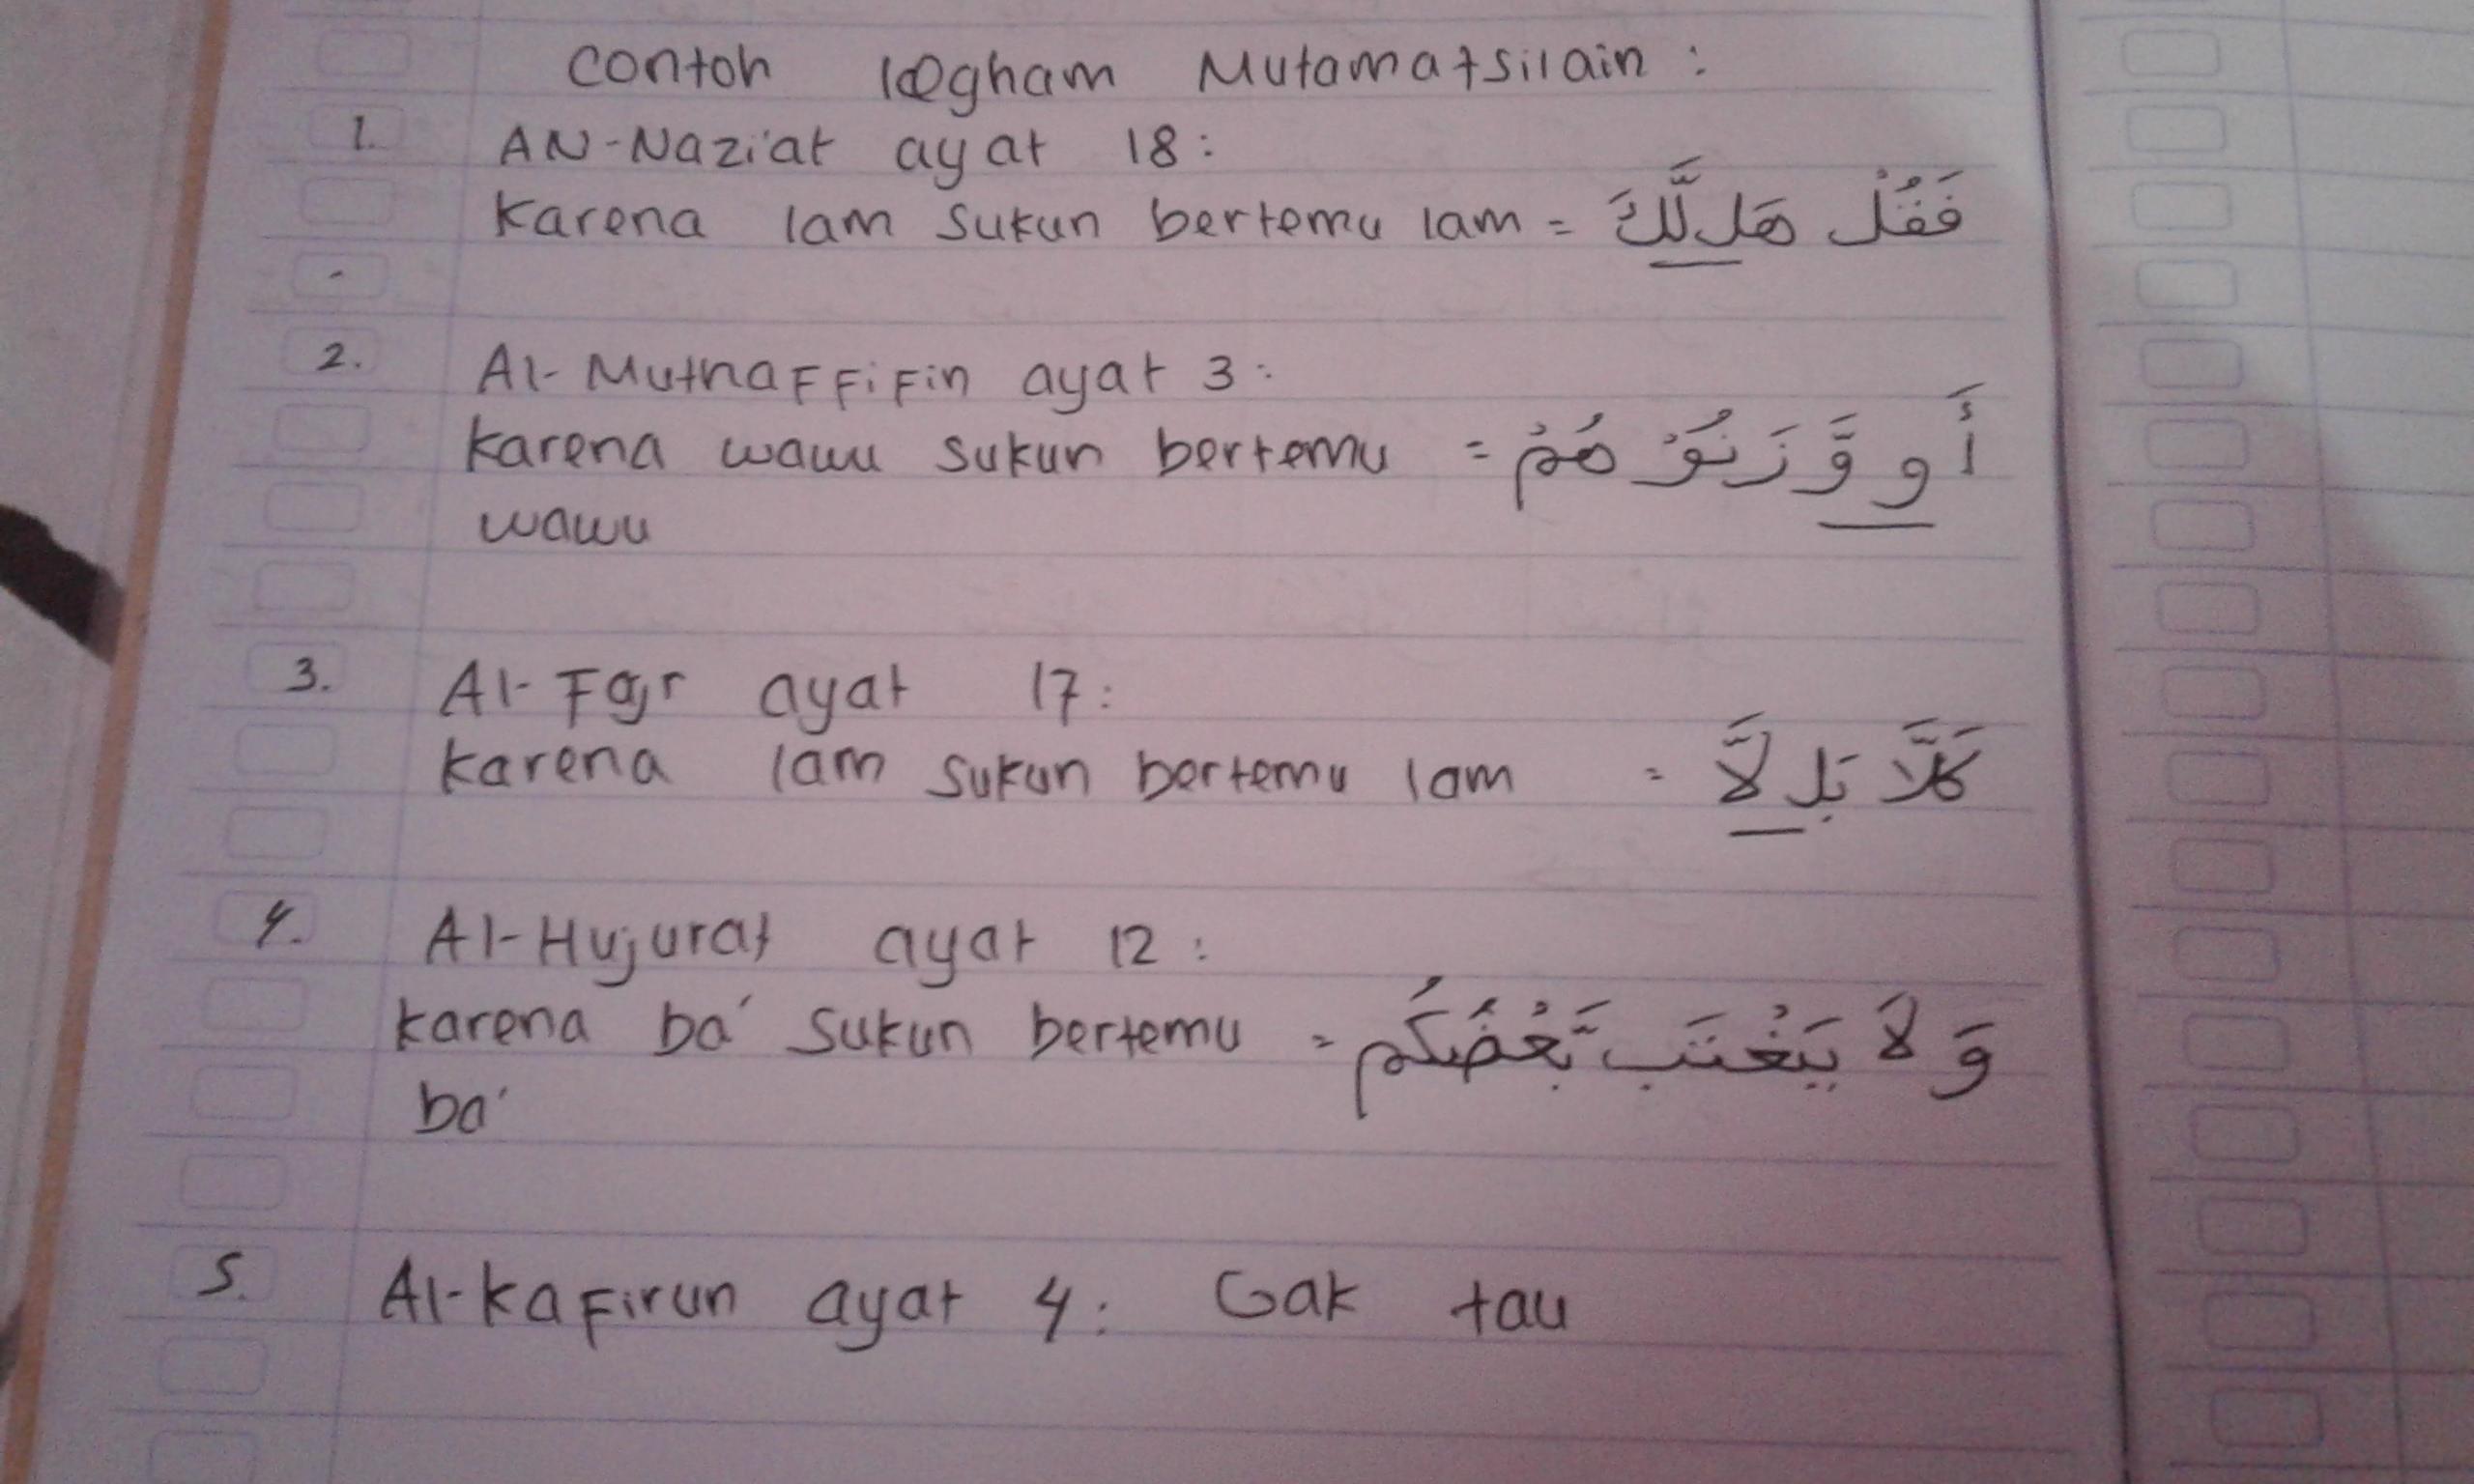 Contoh Idgham Mutamatsilain :
1. AN-Nazi'at ayat 18 :
Karena lam sukun bertemu lam = فَقُلْ هَل لَّكَ
2. Al-MuthaFFiFin ayat 3 :
Karena wawu sukun bertemu = أَو وَّزَنُوْ هُمْ
wawu
3. Al-Fajr ayat 17 :
Karena lam sukun bertemu lam = كَلَّا بَل لَّا
4. Al-Hujurat ayat 12 :
Karena ba' sukun bertemu = وَ لَا يَغْتَب بَّعْضُكُم
ba'
5. Al-kaFirun ayat 4 : Gak tau